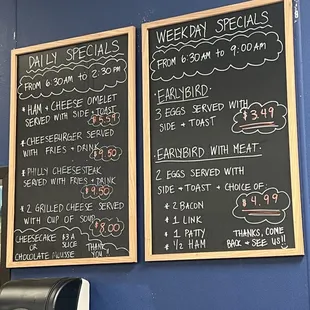 DAILY SPECIALS
FROM 6:30 AM TO 2:30 PM
* HAM + CHEESE OMELET
SERVED WITH SIDE + TOAST
$8.59
* CHEESEBURGER SERVED
WITH FRIES + DRINK
$9.50
* PHILLY CHEESESTEAK
SERVED WITH FRIES + DRINK
$9.50
* 2 GRILLED CHEESE SERVED
WITH CUP OF SOUP
$8.00
CHEESECAKE $3 A
OR SLICE
CHOCOLATE MOUSSE
THANK
YOU
WEEKDAY SPECIALS
FROM 6:30 AM TO 9:00 AM
EARLYBIRD:
3 EGGS SERVED WITH
SIDE + TOAST
$3.49
EARLYBIRD WITH MEAT:
2 EGGS SERVED WITH
SIDE + TOAST + CHOICE OF
* 2 BACON
* 1 LINK
* 1 PATTY
* 1/2 HAM
$4.99
THANKS, COME
BACK + SEE US!!